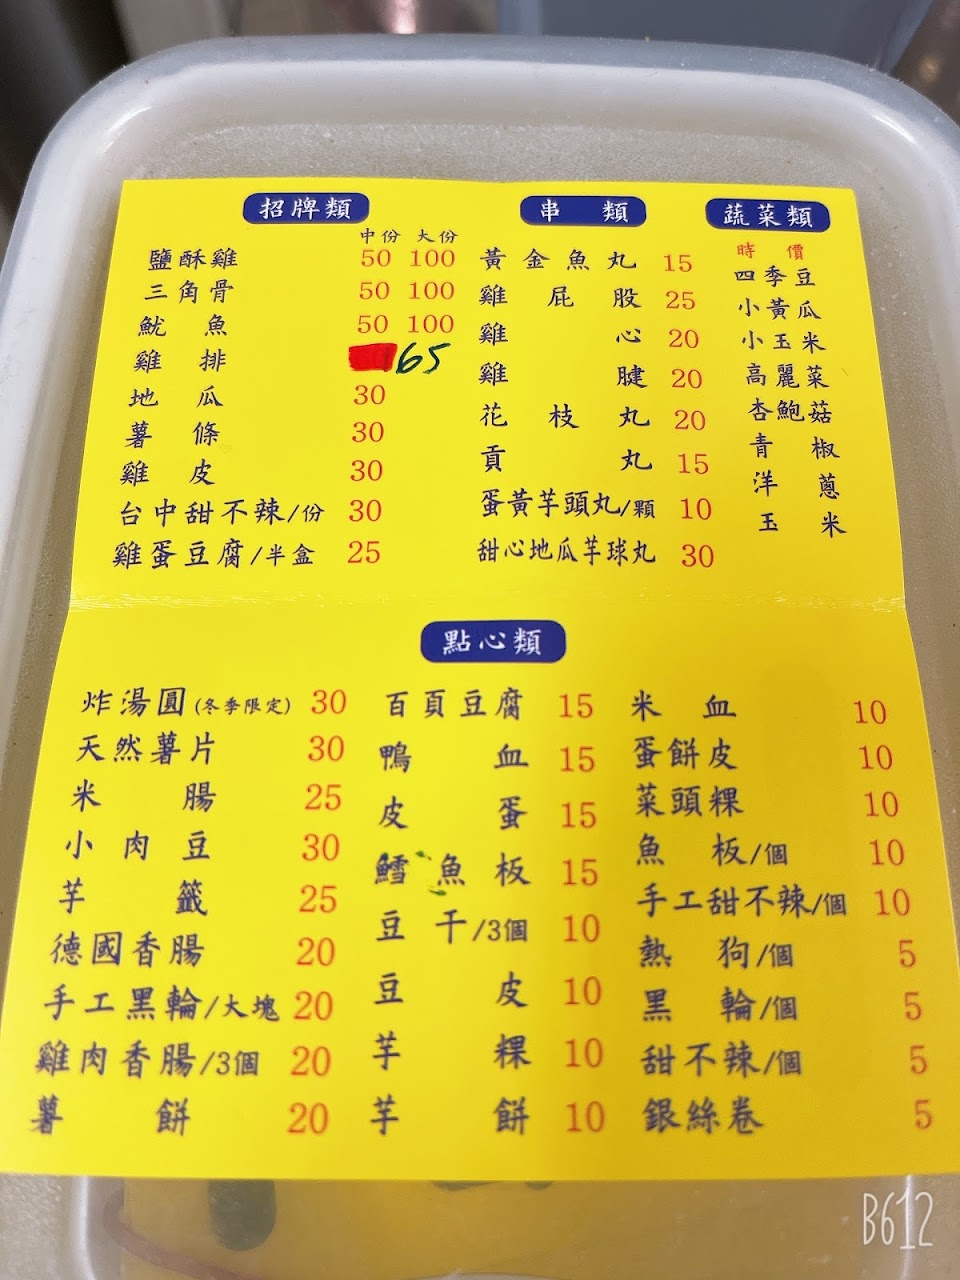 招牌類
中份 大份
鹽酥雞 50 100
三角骨 50 100
魷魚 50 100
雞排 65
地瓜 30
薯條 30
雞皮 30
台中甜不辣/份 30
雞蛋豆腐/半盒 25
串類
黃金魚丸 15
雞屁股 25
雞心 20
雞腱 20
花枝丸 20
貢丸 15
蛋黃芋頭丸/顆 10
甜心地瓜芋球丸 30
蔬菜類
時價
四季豆
小黃瓜
小玉米
高麗菜
杏鮑菇
青椒
洋蔥
玉米
點心類
炸湯圓(冬季限定) 30
天然薯片 30
米腸 25
小肉豆 30
芋籤 25
德國香腸 20
手工黑輪/大塊 20
雞肉香腸/3個 20
薯餅 20
百頁豆腐 15
鴨血 15
皮蛋 15
鱈魚板 15
豆干/3個 10
豆皮 10
芋粿 10
芋餅 10
米血 10
蛋餅皮 10
菜頭粿 10
魚板/個 10
手工甜不辣/個 10
熱狗/個 5
黑輪/個 5
甜不辣/個 5
銀絲卷 5
B612